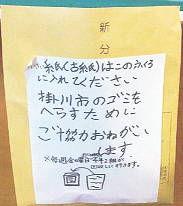 新分
紙(古紙)はこのふくろ
に入れてください
掛川市のゴミを
へらすために
ご協力おねがい
します
※毎週金曜日4年2組が
回収しに行きます。